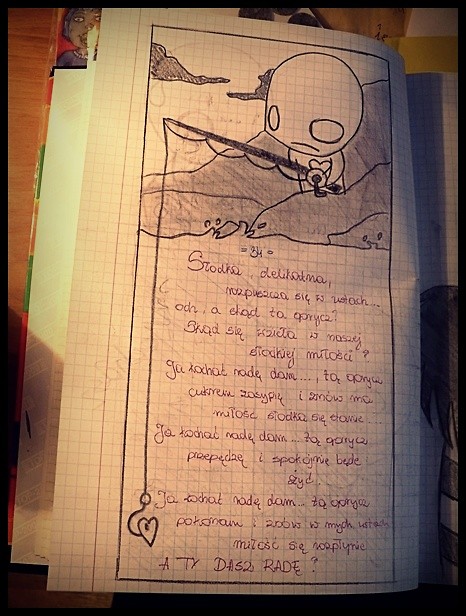 = 34 =
Słodka, delikatna,
rozpuszcza się w ustach...
och, a skąd ta gorycz?
Skąd się wzięła w naszej
słodkiej miłości?
Ja kochać radę dam..., tą gorycz
cukrem zasypię i znów ma
miłość słodka się stanie
Ja kochać radę dam... tą gorycz
przepędzę i spokojnie będę
żyć.
Ja kochać radę dam... tą gorycz
pokonam i znów w mych ustach
miłość się rozpłynie.
A TY DASZ RADĘ?